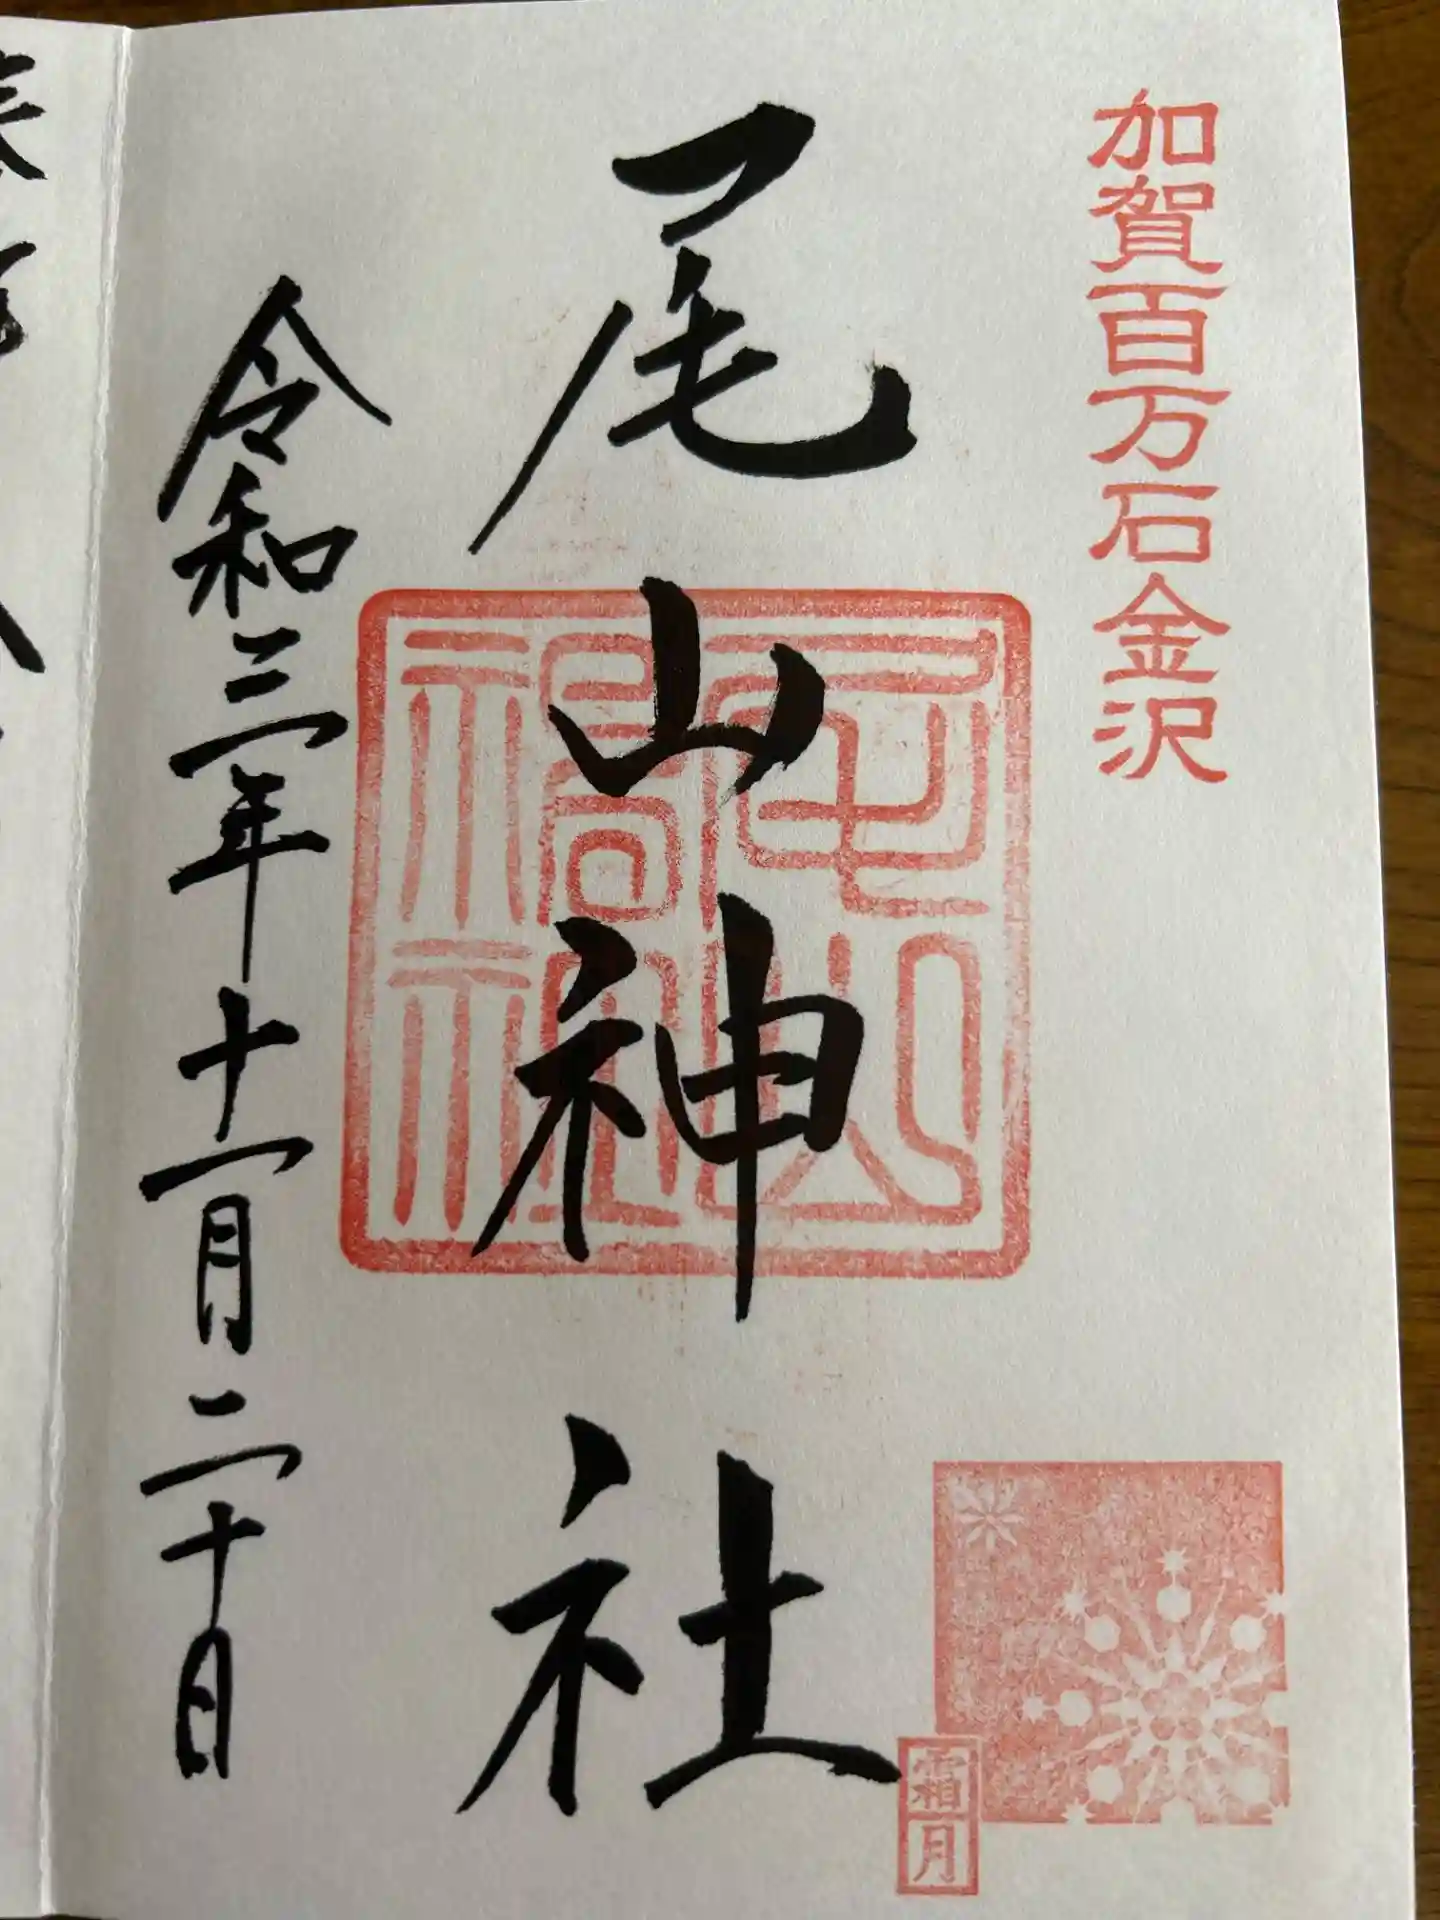 加賀百万石金沢
尾山神社
尾山神社
令和三年十一月二十日
霜月